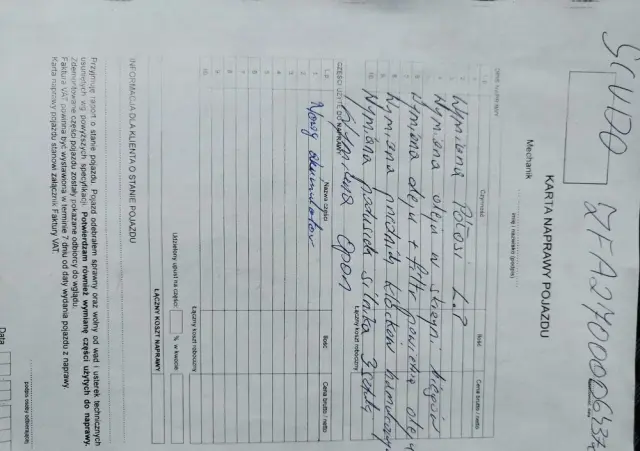 SCUDO ZFA2700006437
KARTA NAPRAWY POJAZDU
Mechanik
imię i nazwisko (podpis)
OPIS NAPRAWY
L.p. Czynność Ilość Cena brutto / netto
Wymiana Półosi L.P
Wymiana oleju w skrzyni biegów
Wymiana oleju + filtr powietrza oleju
Wymiana przednich klocków hamulcowych
Wymiana poduszek silnika 3 sztuki
Łączny koszt robocizny
opon
CZĘŚCI UŻYTE DO NAPRAWY
L.p. Nazwa części Ilość Cena brutto / netto
1 Nowy akumulator
2
3
4
5
6
7
8
9
10
Łączny koszt robocizny
Udzielony upust na części % w kwocie
ŁĄCZNY KOSZT NAPRAWY
INFORMACJA DLA KLIENTA O STANIE POJAZDU
Przyjmuję raport o stanie pojazdu. Pojazd odebrałem sprawny oraz wolny od wad i usterek technicznych
usuniętych wg powyższych specyfikacji. Potwierdzam również wymianę części użytych do naprawy.
Zdemontowane części pojazdu zostały pokazane odbiorcy do wglądu.
Faktura VAT powinna być wystawiona w terminie 7 dni od daty wydania pojazdu z naprawy.
Karta naprawy pojazdu stanowi załącznik Faktury VAT.
Data
podpis osoby odbierającej